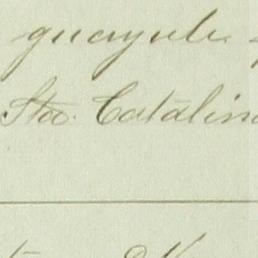 guayule
Sta. Catalin